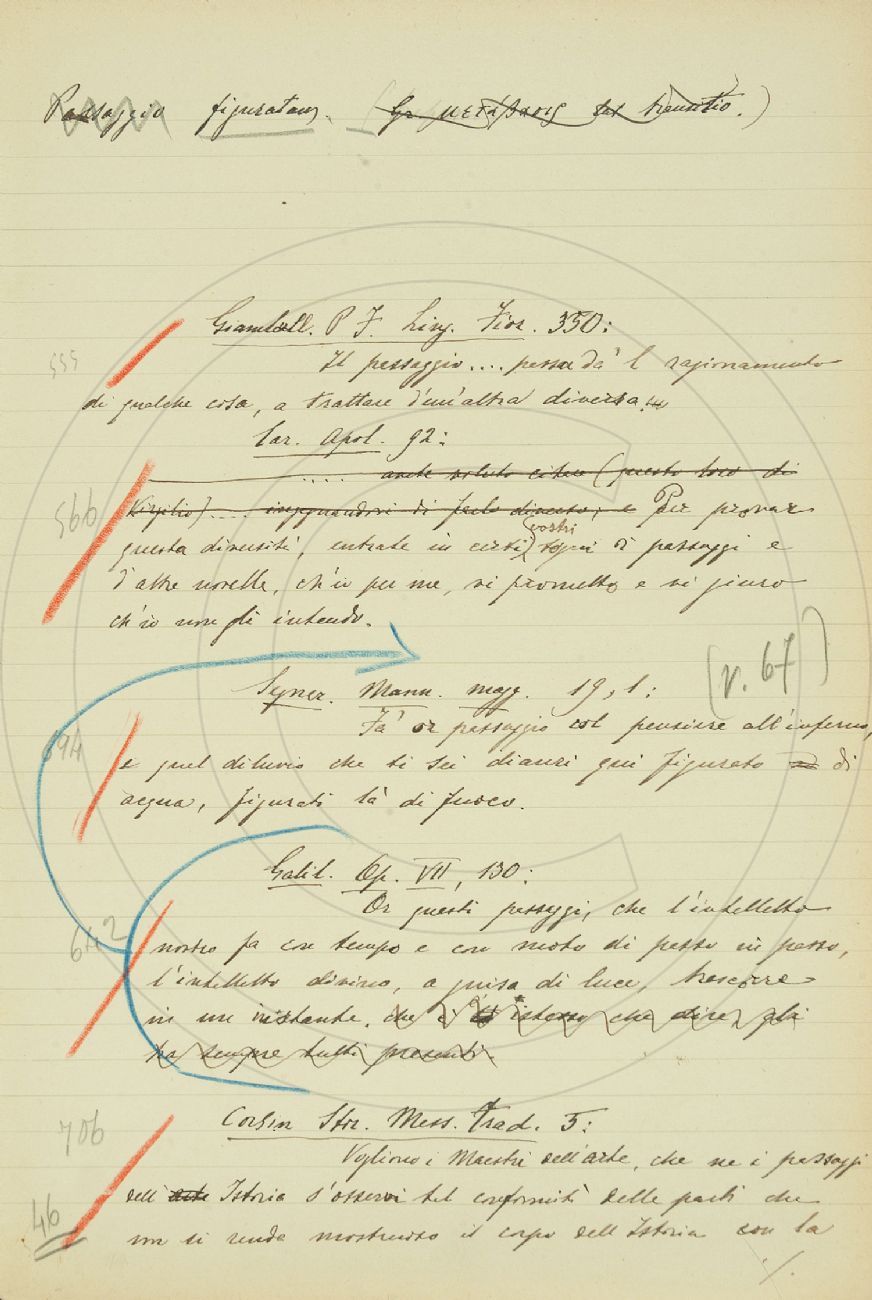 Passaggio figuratam. (Gr μετάβασις lat transitio.)
Giambull. P F. Ling. Fior. 350:
555
Il passaggio .... passa da 'l ragionamento
di qualche cosa, a trattare d'un'altra diversa.
Car. Apol. 92:
.... avete voluto citare (questo loco di
566
Virgilio) .... ingegnandovi di farlo diverso; e Per provar
questa diversità, entrate in certi vostri sogni di passaggi e
d'altre novelle, ch'io per me, vi prometto e vi giuro
ch'io non gli intendo.
(v. 67)
Segner. Mann. magg. 19, 1:
Fa' or passaggio col pensiere all'inferno,
694
e quel diluvio che ti sei dianzi qui figurato di
acqua, figurati là di fuoco.
Galil. Op. VII, 130:
Or questi passaggi, che l'intelletto
642
nostro fa con tempo e con moto di passo in passo,
l'intelletto divino, a guisa di luce, trascorre
in un instante, che è l' istesso che dire, gli
ha sempre tutti presenti.
706
Corsin Stor. Mess. Trad. 5:
Vogliono i Maestri dell'arte, che ne i passaggi
dell' arte Istoria s'osservi tal conformità delle parti che
46
non si renda mostruoso il corpo dell'Istoria con la
./.